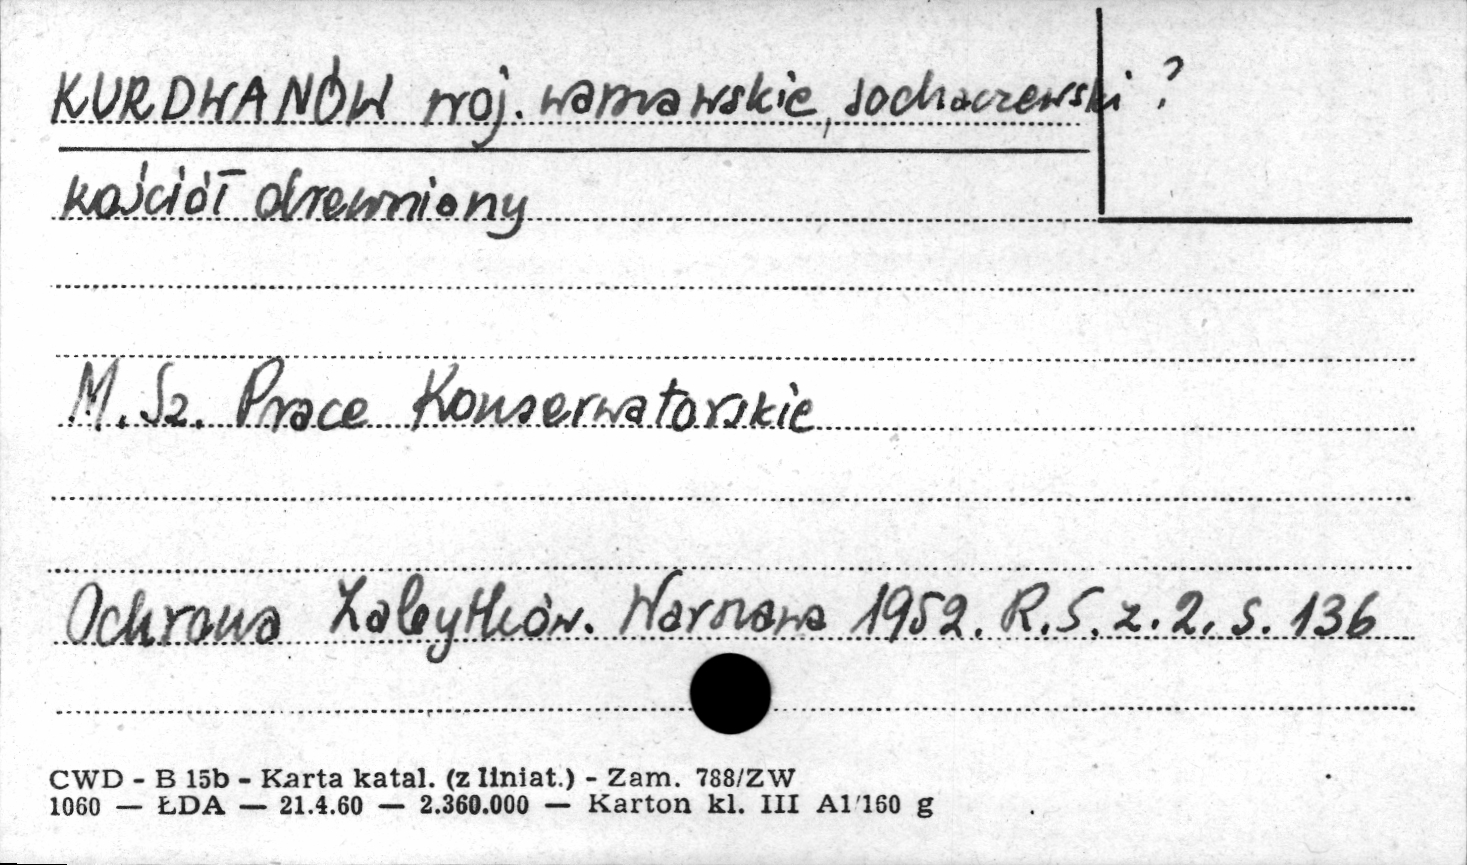 KURDWANÓW woj. warszawskie, sochaczewski ?
kościół drewniany
M. Sz. Prace Konserwatorskie
Ochrona Zabytków. Warszawa 1952. R. 5. z. 2. s. 136
CWD - B 15b - Karta katal. (z liniat.) - Zam. 788/ZW
1060 — ŁDA — 21.4.60 — 2.360.000 — Karton kl. III A1/160 g